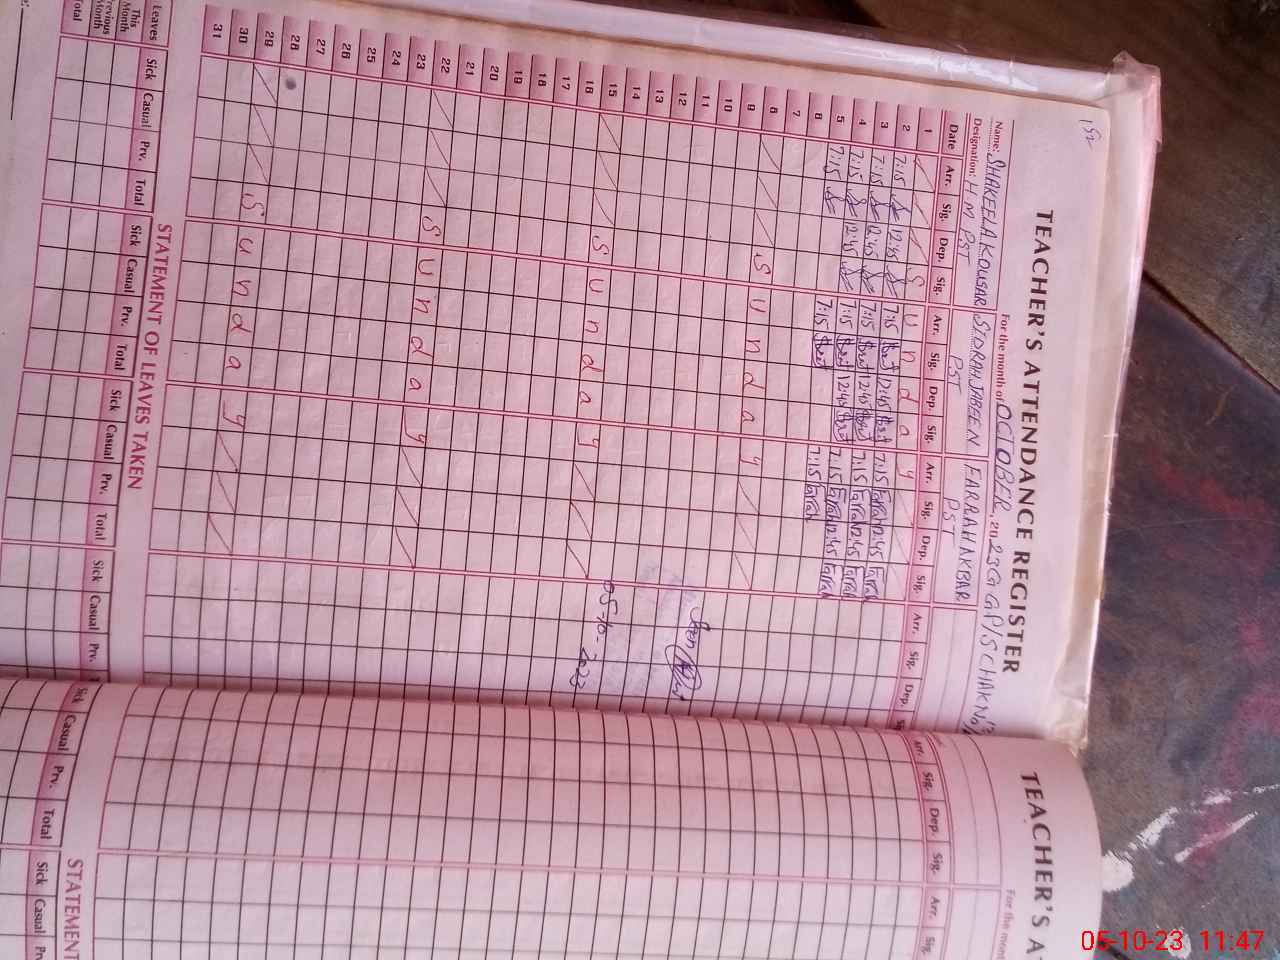 152
TEACHER'S ATTENDANCE REGISTER
For the month of OCTOBER, 2023 GGP/S CHAK No
Name: SHAKEELA KOUSAR SIDRAH JABEEN FARRAH AKBAR
Designation: HM PST PST PST
Date Arr. Sig. Dep. Sig. Arr. Sig. Dep. Sig. Arr. Sig. Dep. Sig. Arr. Sig. Dep.
1 Sunday
2 7:15 12:45 7:15 12:45 7:15 Farah 12:45 Farah
3 7:15 12:45 7:15 12:45 7:15 Farah 12:45 Farah
4 7:15 12:45 7:15 12:45 7:15 Farah 12:45 Farah
5 7:15 7:15 7:15 Farah
6
7
8 Sunday
9
10
11
12
13
14
15 Sunday
16
17
18
19
20
21
22 Sunday
23
24
25
26
27
28
29 Sunday
30
31
05-10-2023
STATEMENT OF LEAVES TAKEN
Leaves Sick Casual Prv. Total Sick Casual Prv. Total Sick Casual Prv. Total Sick Casual Prv.
This Month
Previous Month
Total
TEACHER'S A
For the mont
Arr. Sig. Dep. Sig. Arr. Sig.
STATEMENT
Sick Casual Prv. Total Sick Casual Prv.
05-10-23 11:47